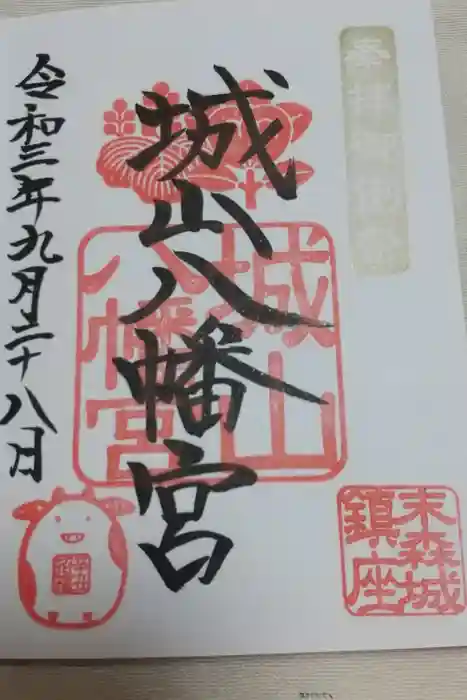 城山八幡宮
城山
八幡宮
末森城
鎮座
令和三年九月二十八日